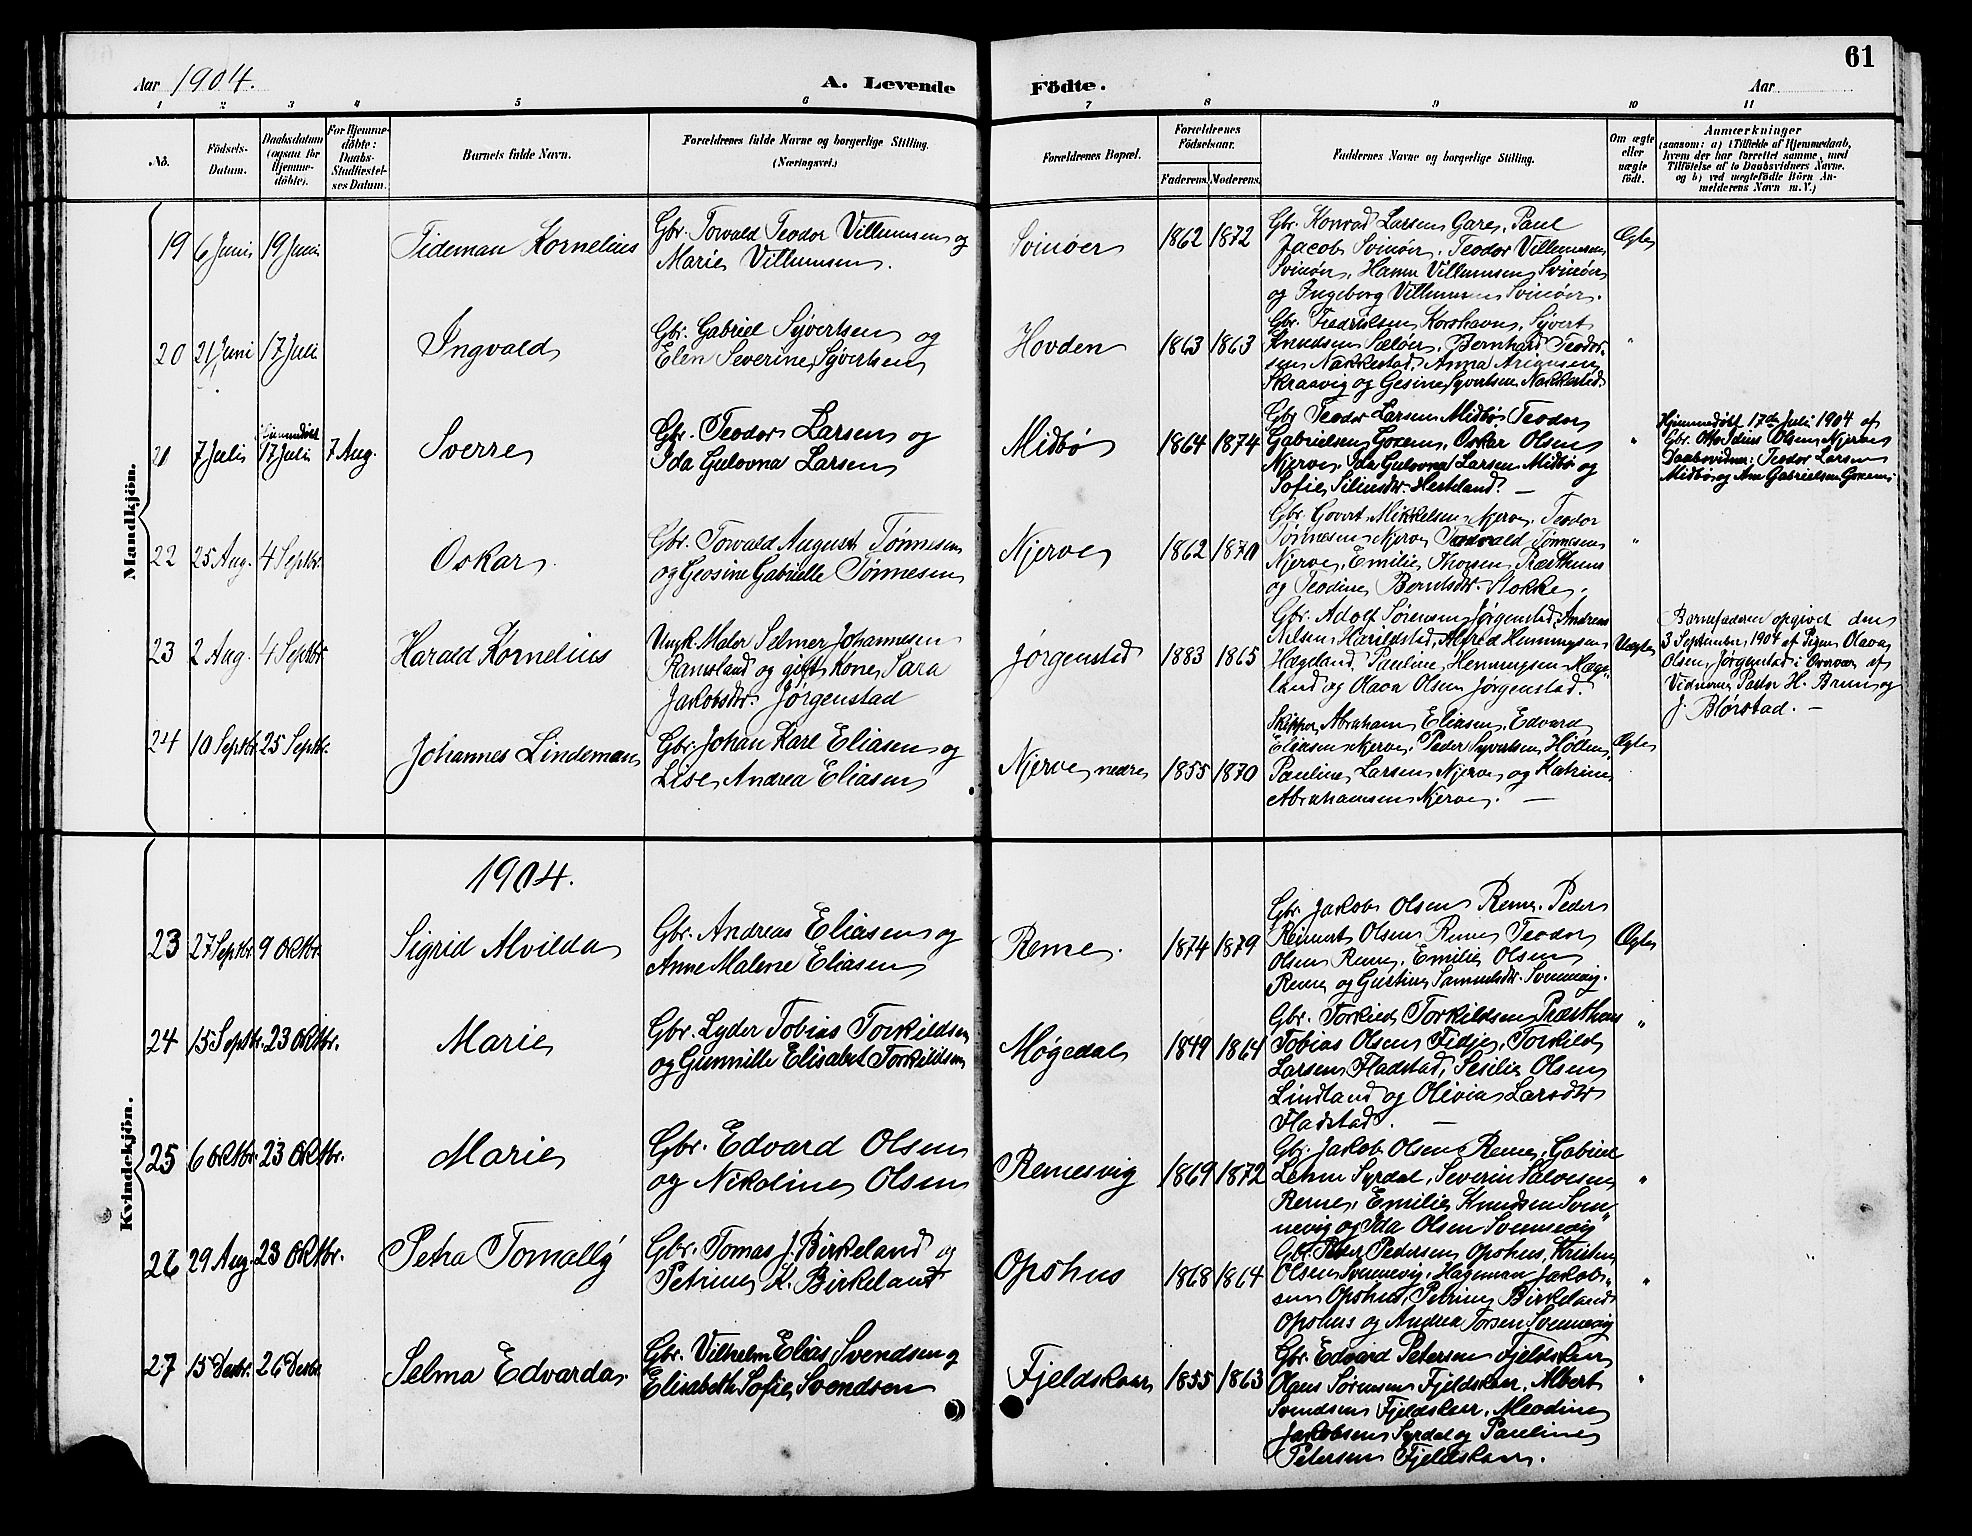 61
Aar 1904.
A. Levende Födte.
Aar
1 2 3 4 5 6 7 8 9 10 11
No.
Födsels-Datum.
Daabsdatum (ogsaa for Hjemme-döbte).
For Hjemme-döbte: Daabs-Stadfæstel-ses Datum.
Barnets fulde Navn.
Forældrenes fulde Navne og borgerlige Stilling. (Næringsvei.)
Forældrenes Bopæl.
Forældrenes Födselsaar.
Faderens. Moderens.
Faddernes Navne og borgerlige Stilling.
Om ægte eller uægte födt.
Anmærkninger
(saasom: a) i Tilfælde af Hjemmedaab,
hvem der har forrettet samme, med
Tilföielse af to Daabsvidners Navne.
og b) ved uægtefödte Börn An-
melderens Navn m. V.)
Mandkjön.
19 6 Juni 19 Juni Tideman Kornelius
Gbr. Torvald Teodor Villumsen og
Marie Villumsen.
Svinöer 1862 1872
Gbr. Konrad Larsen Gare, Paul
Jacobs Svinör, Teodor Villumsen
Svinör, Hanna Villumsen Svinör
og Ingeborg Villumsen Svinöer.
Ægte
20 21 Juni 17 Juli Ingvald
Gbr. Gabriel Syvertsen og
Elen Severine Syvertsen
Hovden 1863 1863
Gbr. Fredriksen Korshavn, Syvert
Knudsen Sælör, Bernhard Teodor-
sen Nakkestad, Anna
Skraavig og Gesine Syvertsen Nakkestad
"
21 7 Juli Hjemmedöbt 17 Juli 7 Aug. Sverre
Gbr. Teodor Larsen og
Ida Gulovna Larsen
Midbø 1864 1874
Gbr Teodor Larsen Midbø, Teodor
Gabrielsen Goxem, Oskar Olsen
Njerve, Ida Gulovna Larsen Midbø og
Sofie Siliusdtr. Hesteland. –
"
Hjemmedöbt 17de Juli 1904 af
Gbr. Otto Idius Olsen Njerve
Daabsvidner: Teodor Larsen
Midbø og Ane Gabrielsen Goxem
22 25 Aug. 4 Septbr. Oskar
Gbr. Torvald August Tønnesen
og Geosine Gabrielle Tønnesen
Njerve 1862 1870
Gbr. Govert Mikkelsen Njerve, Teodor
Tønnesen Njerve Torvald Tønnesen
Njerve, Emilie Thorsen, Præsthus
og Teodine Berntsdtr. Stokke.
"
23 2 Aug. 4 Septbr. Harald Kornelius
Ungk. Maler Selmer Johannesen
Ramsland og gift Kone Sara
Jakobsdtr. Jørgenstad
Jørgenstad 1883 1865
Gbr. Adolf Sørensen Jørgenstad, Andreas
Nilsen Harildstad, Alfred Henningsen
Hægeland, Pauline Henningsen Hæge-
land og Olava Olsen Jørgenstad.
Uægte
Barnefaderen opgivet den
3 September 1904 af Pigen Olava
Olsen, Jørgenstad i Overvær af
Vidnerne Pastor H. Bruun og
J. Blörstad. –
24 10 Septbr. 25 Septbr. Johannes Lindeman
Gbr. Johan Karl Eliasen og
Lise Andrea Eliasen
Njerve nedre 1855 1870
Skipper Abraham Eliasen, Edvard
Eliasen Njerve, Peder Syvertsen Holten,
Pauline Larsen Njerve og Katrine
Abrahamsen Njerve. –
Ægte
Kvindekjön.
1904.
23 27 Septbr. 9 Oktbr. Sigrid Alvilda
Gbr. Andreas Eliasen og
Anne Malene Eliasen
Reme. 1874 1879
Gbr. Jakob Olsen Reme, Peder
Reinert Olsen Reme Teodor
Olsen Reme, Emilie Olsen
Reme og Gustine Samuelsdtr. Svennevig.
Ægte
24 15 Septbr. 23 Oktbr. Marie
Gbr. Lyder Tobias Torkildsen
og Gunnille Elisabet Torkildsen
Møgedal 1849 1864
Gbr. Torkild Torkildsen Præsthus
Tobias Olsen Fidje, Torkild
Larsen Fladstad, Sesilie Olsen
Lindland og Olivia Larsdtr
Fladstad. –
"
25 6 Oktbr. 23 Oktbr. Marie
Gbr. Edvard Olsen
og Nikoline Olsen
Remesvig 1869 1872
Gbr. Jakob Olsen Reme, Gabriel
Lehne Syrdal, Severin Salvesen
Reme, Emilie Knudsen Sven-
nevig og Ida Olsen Svennevig
"
26 29 Aug. 23 Oktbr. Petra Tomally
Gbr. Tomas J. Birkeland og
Petrine K. Birkeland
Opshus 1868 1864
Gbr. Peder Pedersen, Opshus, Kristen
Olsen Svennevig, Hagman Jakob-
sen Opshus, Petrine Birkeland
Opshus og Andrea Torsen Svennevig
"
27 15 Decbr. 26 Decbr Selma Edvarda.
Gbr. Vilhelm Elias Svendsen og
Elisabeth Sofie Svendsen
Fjeldskaar 1855 1863
Gbr. Edvard Petersen Fjeldskaar
Olaus Sørensen Fjeldskaar, Albert
Svendsen Fjeldskaar, Meodine
Jakobsen Syrdal og Pauline
Petersen Fjeldskaar.
"